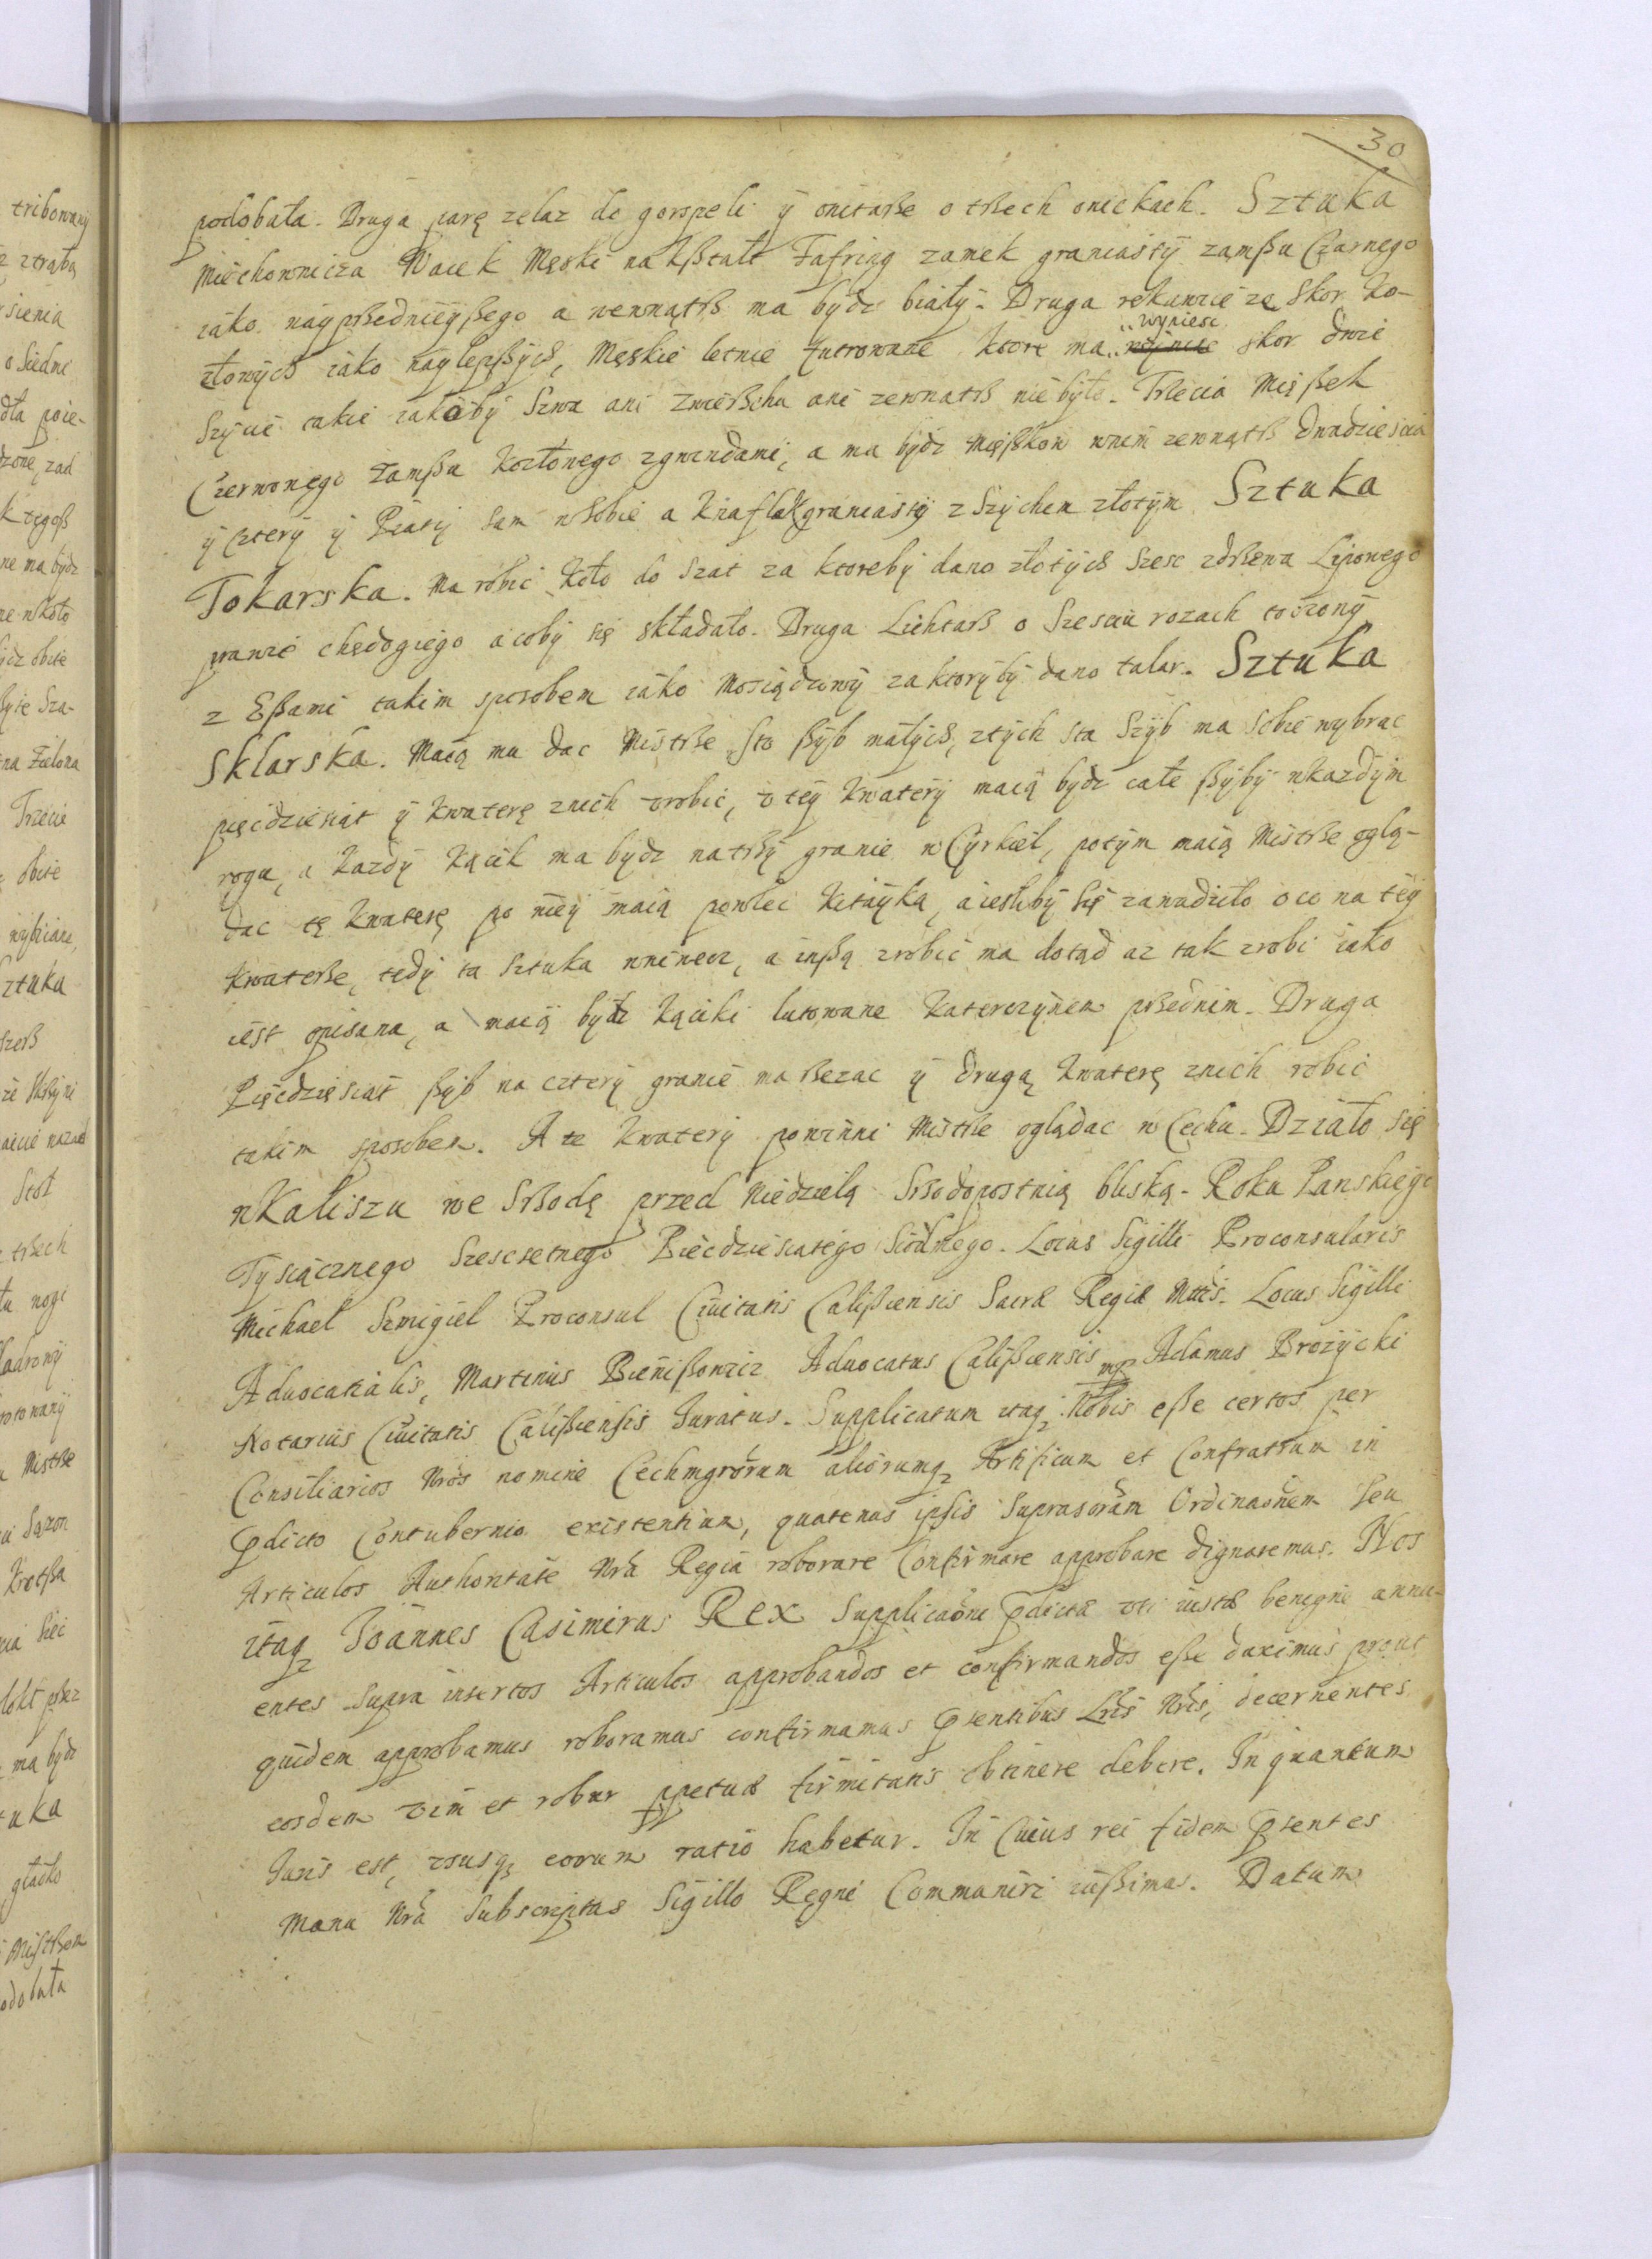 30
podobała. Druga parę zelaz do gorspeli ÿ onitarße o trßech onickach. Sztuka
Miechownicza Wacek Męski na kßtałt Fafrinq zamek graniastÿ zamßu Czarnego
iáko naÿprßednieÿßego a wewnątrß ma bydz białÿ. Druga rekawice ze Skor Ko-
złowÿch iáko naÿlepßÿch, Męskie letnie futrowane ktore ma wyniesc skor dwie
Szÿcie takie iakobÿ Szwa ani zwierßchu ani zewnatrß nie bÿło. Trzecia Mięßek
Czerwonego zamßu kozłowego zgwizdami, a ma bÿdz Mięßkow wnim zewnątrß dwadziescia
ÿ cterÿ ÿ Piątÿ sam wsobie a Knaflek graniastÿ z Szÿchem złotÿm Sztuka
Tokarska. Ma robic Koło do Szat za ktorebÿ dano złotÿch Szesc zdrßewa Lipowego
prawie chędogiego a cobÿ się składało. Druga Lichtarß o Szesciu rozach toczonÿ
z Eßami takim sposobem iáko Mosiądzowÿ za ktorÿbÿ dano talar. Sztuka
Sklarska. Maią mu dac Mistrße Sto ßÿb małÿch, ztÿch sta Szÿb ma sobie wybrac
pięcdziesiąt ÿ kwaterę znich urobic, v teÿ kwaterÿ maią bÿdz całe ßÿbÿ wkazdÿm
rogu, a kazdÿ Kącik ma bydz na trßÿ granie w Cÿrkiel, potÿm maią Mistrße oglą-
dac tę kwaterę po nieÿ maią powlec Kitaÿką, a iesliby Się zawadziło o co na teÿ
kwaterße, tedÿ ta Sztuka wniwecz, a inßą zrobic ma dotąd az tak zrobi iako
iest opisana, a maią bÿdz Kąciki lutowane Katerczÿnem prßednim. Druga
Pięcdziesiat ßÿb na czterÿ granie ma rßezac ÿ drugą kwaterę znich robic
takim sposobem. A te kwaterÿ powinni Mistrße oglądac w Cechu. Działo się
wKaliszu we Srßodę przed Niedzielą Srßodopostnią bliską. Roku Panskiego
Tysiącznego Szescsetnego Pięcdziesiatego Siodmego. Locus Sigilli Proconsularis
Michael Szmigiel Proconsul Ciuitatis Calißiensis Sacræ Regiæ Mttis. Locus Sigilli
Aduocatialis, Martinus Bieńißowicz Aduocatus Calißiensis mp Adamus Brożÿcki
Notarius Ciuitatis Calißiensis Juratus. Supplicatum itaq Nobis eße certos per
Consiliarios Nros nomine Cechmgrorum aliorumq Artificum et Confratrum in
pdicto Contubernio existentium, quatenus ipsis Suprascram Ordinaonem Seu
Articulos Authoritate Nra Regia roborare Confirmare approbare dignaremur. Nos
itaq Joannes Casimirus Rex Supplicaõni pdictæ vti iustæ benigne annu-
entes Supra insertos Articulos approbandos et confirmandos eße duximus prout
quidem approbamus roboramus confirmamus pńtentibus Lris Nris, decernentes
eosdem vim et robur ppetuæ firmitatis obtinere debere. In quantum
Juris est, ususq eorum ratio habetur. In Cuius rei fidem pńtentes
Manu Nra Subscriptas Sigillo Regni Communiri iußimus. Datum